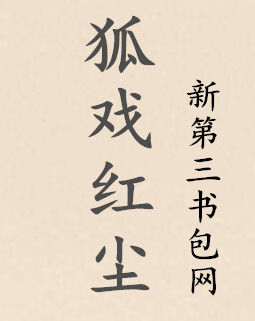 狐戏红尘
新第三书包网